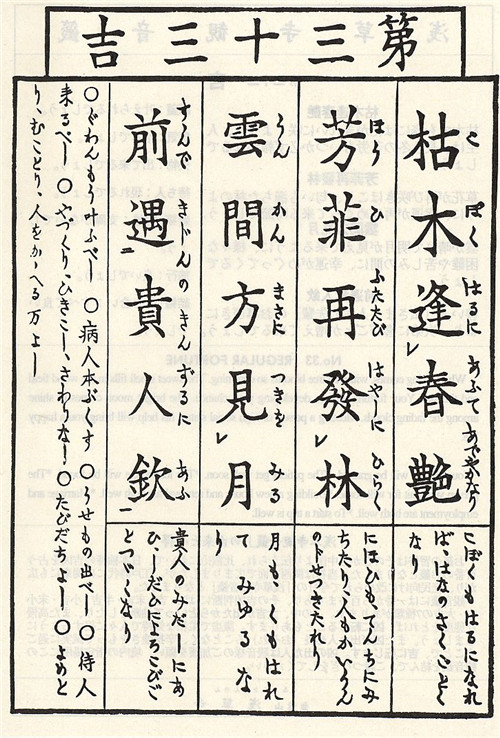 第三十三吉
こぼくはるにあふてあでやかなり
枯木逢㆑春艶
こぼくもはるになれ
ば、はなのさくごとく
なり
はうひふたたびはやしにひらく
芳菲再發㆑林
にほひもてんちにみ
ちたり、人もかいうん
のじせつきたれり
うんかんまさにつきをみる
雲間方見㆑月
月もくもはれ
てみゆるな
り
すゝんできじんのきんずるにあふ
前遇㆓貴人欽㆒
貴人のみだしにあ
ひ、
とつゞくなり
○ぐわんもう叶ふべし ○病人本ぷくす ○うせもの出べし ○待人
来るべし ○やづくり、ひきこし、さわりなし ○たびだちよし ○よめと
り、むことり、人をかゝへる万よし